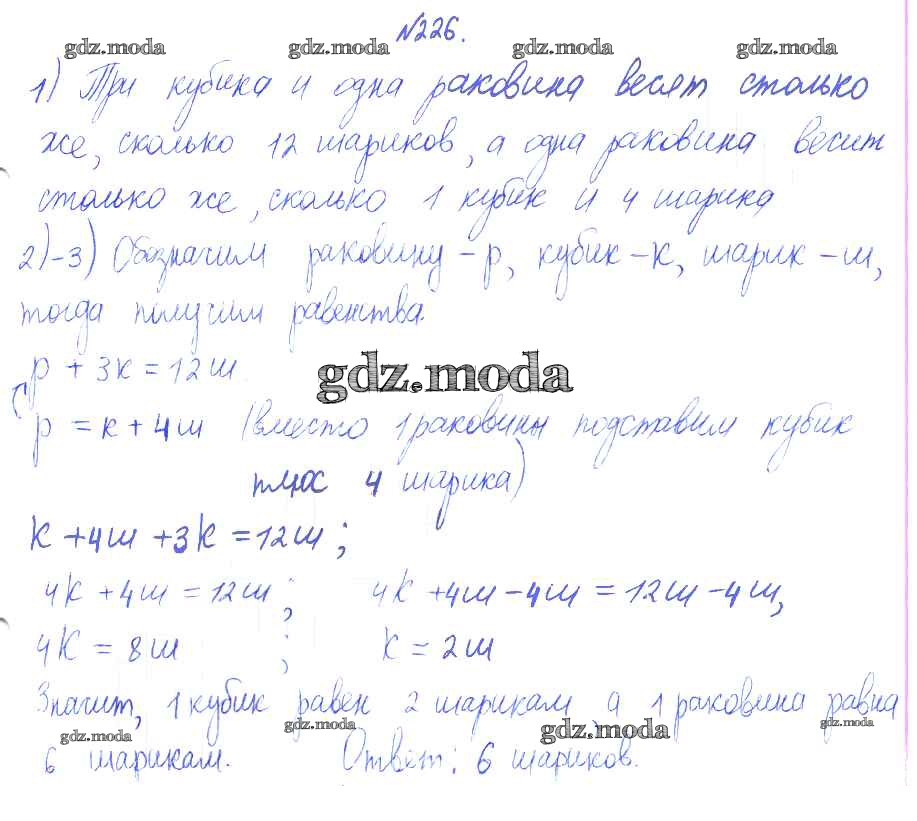 №226.
gdz.moda gdz.moda gdz.moda gdz.moda
1) Три кубика и одна раковина весят столько
же, сколько 12 шариков, а одна раковина весит
столько же, сколько 1 кубик и 4 шарика
2)-3) Обозначим раковину - р, кубик - к, шарик - ш,
тогда получим равенства.
р + 3к = 12ш
gdz.moda
р = к + 4ш (вместо 1 раковины подставим кубик
плюс 4 шарика)
к + 4ш + 3к = 12ш;
4к + 4ш = 12ш; 4к + 4ш - 4ш = 12ш - 4ш,
4к = 8ш; к = 2ш
Значит, 1 кубик равен 2 шарикам, а 1 раковина равна
gdz.moda gdz.moda gdz.moda gdz.moda
6 шарикам. Ответ: 6 шариков.